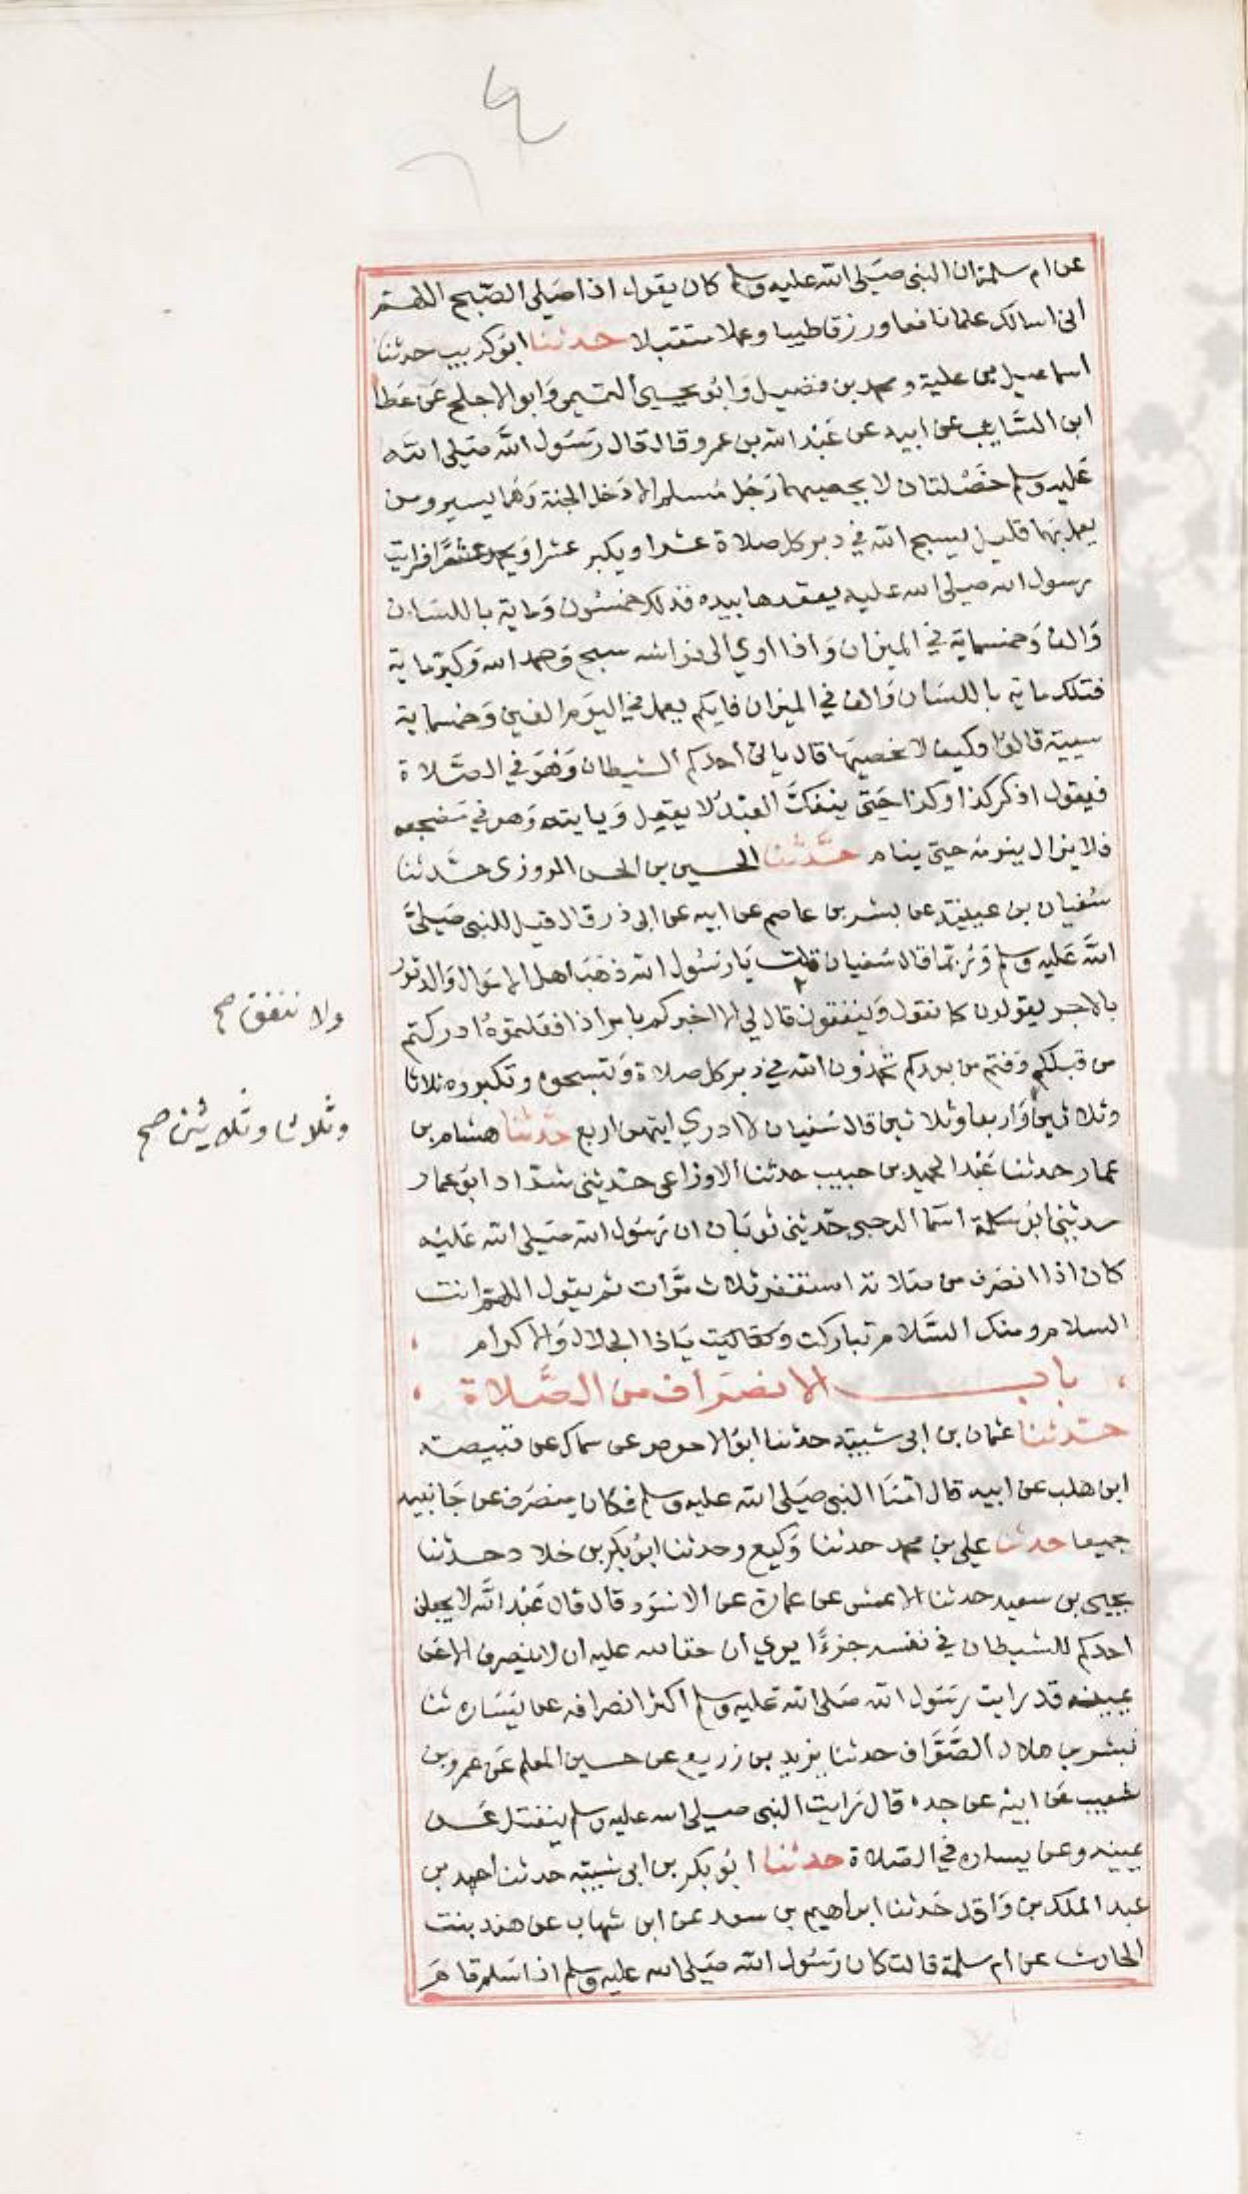 عن ام سلمة ان النبي صَلى الله عليه وسلم كان يقول اذا صَلى الصّبح اللهم
انى اسالك علما نافعا ورزقا طيبا وعملا متقبلا حدثنا ابو كريب حدثنا
اسماعيل بن علية ومحمد بن فضيل وَابو يحيى التيمى وَابو الاجلح عَن عَطا
ابن السَّايب عن ابيه عن عَبْد الله بن عمرو قال قال رَسُول الله صَلى الله
عَليه وسلم خَصْلتان لا يحصيهما رَجُل مُسلم الا دَخل الجنة وَهما يسير ومن
يعمل بهَا قليل يسبح الله في دبر كل صلاة عشرا ويكبر عشرا وَيحمد عشرًا فرايت
رسول الله صلى الله عليه يعقدها بيده فذلك خمسُون وَماية باللسَان
وَالف وَخمسماية في الميزان وَاذا اوي الى فراشه سبح وَحمد الله وَكبر ماية
فتلك ماية باللسَان وَالف في الميزان فايكم يعمل في اليَوم الفين وَخمسماية
سيية قالوْا وكيف لا نحصيهَا قال ياتى أحدكم الشيطان وَهْوَ في الصّلاة
فيقول اذكر كذا وكذا حَتّى ينفكَّ العَبْدُ لا يعقل وَياتيه وَهو في مَضجعه
فلا يزال ينومه حتى ينام حَدّثنا الحسين بن الحسن المروزى حدَّثنا
سُفيان بن عيينَة عن بشر بن عاصم عن ابيه عن ابى ذر قال قيل للنبى صَلىَّ
الله عَليه وسلم وَرُبمَا قال سُفيان قلت يَا رسُول الله ذهَبَ اهل الاموَال وَالدثور
بالاجر يقولون كما نقول وَينفقون قال لي الا اخبركم بامر اذا فعلتموهُ ادركتم
من قبلكم وَفتم من بعدكم تحمدُون الله في دبر كل صلاة وَتسبحوه وتكبروه ثلاثا
وثلاثين وَاربعا وثلاثين قال سُفيان لا ادري ايتهن اربع حَدّثنا هشام بن
عمار حدثنا عَبْد الحميد بن حبيب حدثنا الاوزاعى حدّثنى شدّاد ابو عمار
حدثنى ابُو سَلمة اسْما الرحبى حَدثنى ثوبَان ان رَسُول الله صَلى الله عَليْه
كان اذا انصَرف من صَلاته استغفر ثلاث مرَّات ثم يقول اللهم انت
السلام ومنك السَّلام تباركت وَتعَاليت يَاذا الجلال وَالاكرام
باب الانصَراف من الصَّلاة
حدّثنا عثمان بن ابى شيبَة حدثنا ابوُ الاحوص عن سماك عن قبيصة
ابن هلب عن ابيه قال امّنَا النبى صَلى الله عليه وسلم فكان ينصَرف عن جَانبيه
جميعا حدثنا علي بن محمد حدثنا وَكيع وحدثنا ابُو بكر بن خلاد حدثنا
يحيى بن سعيد حدثنا الاعمش عن عمارة عن الاسَود قال قال عَبْد الله لا يجعلن
احدكم للشيطان في نفسه جزءًا يري ان حقا لله عليه ان لا ينصرف الا عَن
يمينه قد رايت رسَول الله صَلى الله عَليه وسلم اكثر انصرافه عن يسَاره ثنا
بشر بن هلال الصَّوَّاف حدثنا يزيد بن زريع عن حسين المعلم عَن عمرو بن
شعيب عَن ابيْه عن جده قال رَايت النبى صلى الله عليه وسلم ينفتل عَن
يمينه وعن يساره في الصّلاة حدثنا ابوُ بكر بن ابى شيبَة حدثنا احمد بن
عبد الملك بن وَاقد حَدثنا ابراهيم بن سعد عن ابن شهاب عن هند بنت
الحارث عن ام سلمة قالت كان رَسُول الله صَلى الله عليه وسلم اذا سَلم قامَ
ولا ننفق صح
وثلاثا وثلاثين صح